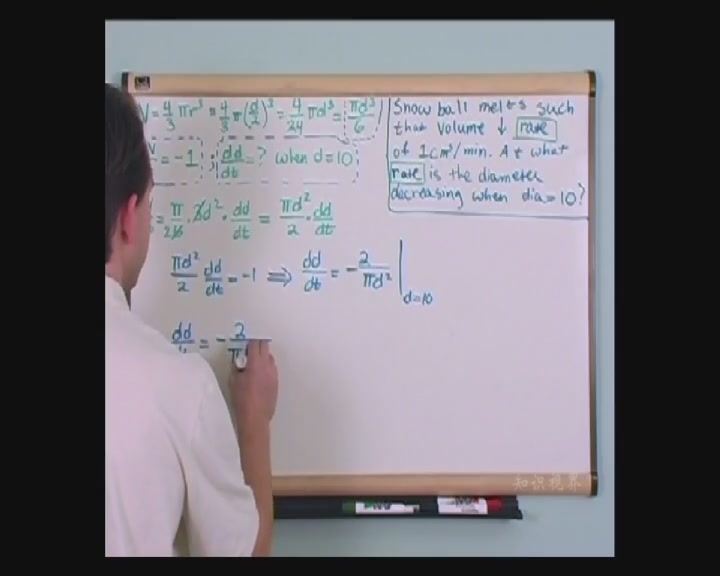 V = 4/3 πr³ = 4/3 π(d/2)³ = 4/24 πd³ = πd³/6
= -1 ; dd/dt = ? when d=10
= π/26 · 3d² · dd/dt = πd²/2 · dd/dt
πd²/2 dd/dt = -1 ⟹ dd/dt = -2/πd² | d=10
dd/ = -2/π
Snow ball melts such
that volume ↓ rate
of 1cm³/min. At what
rate is the diameter
decreasing when dia=10?
知识视界